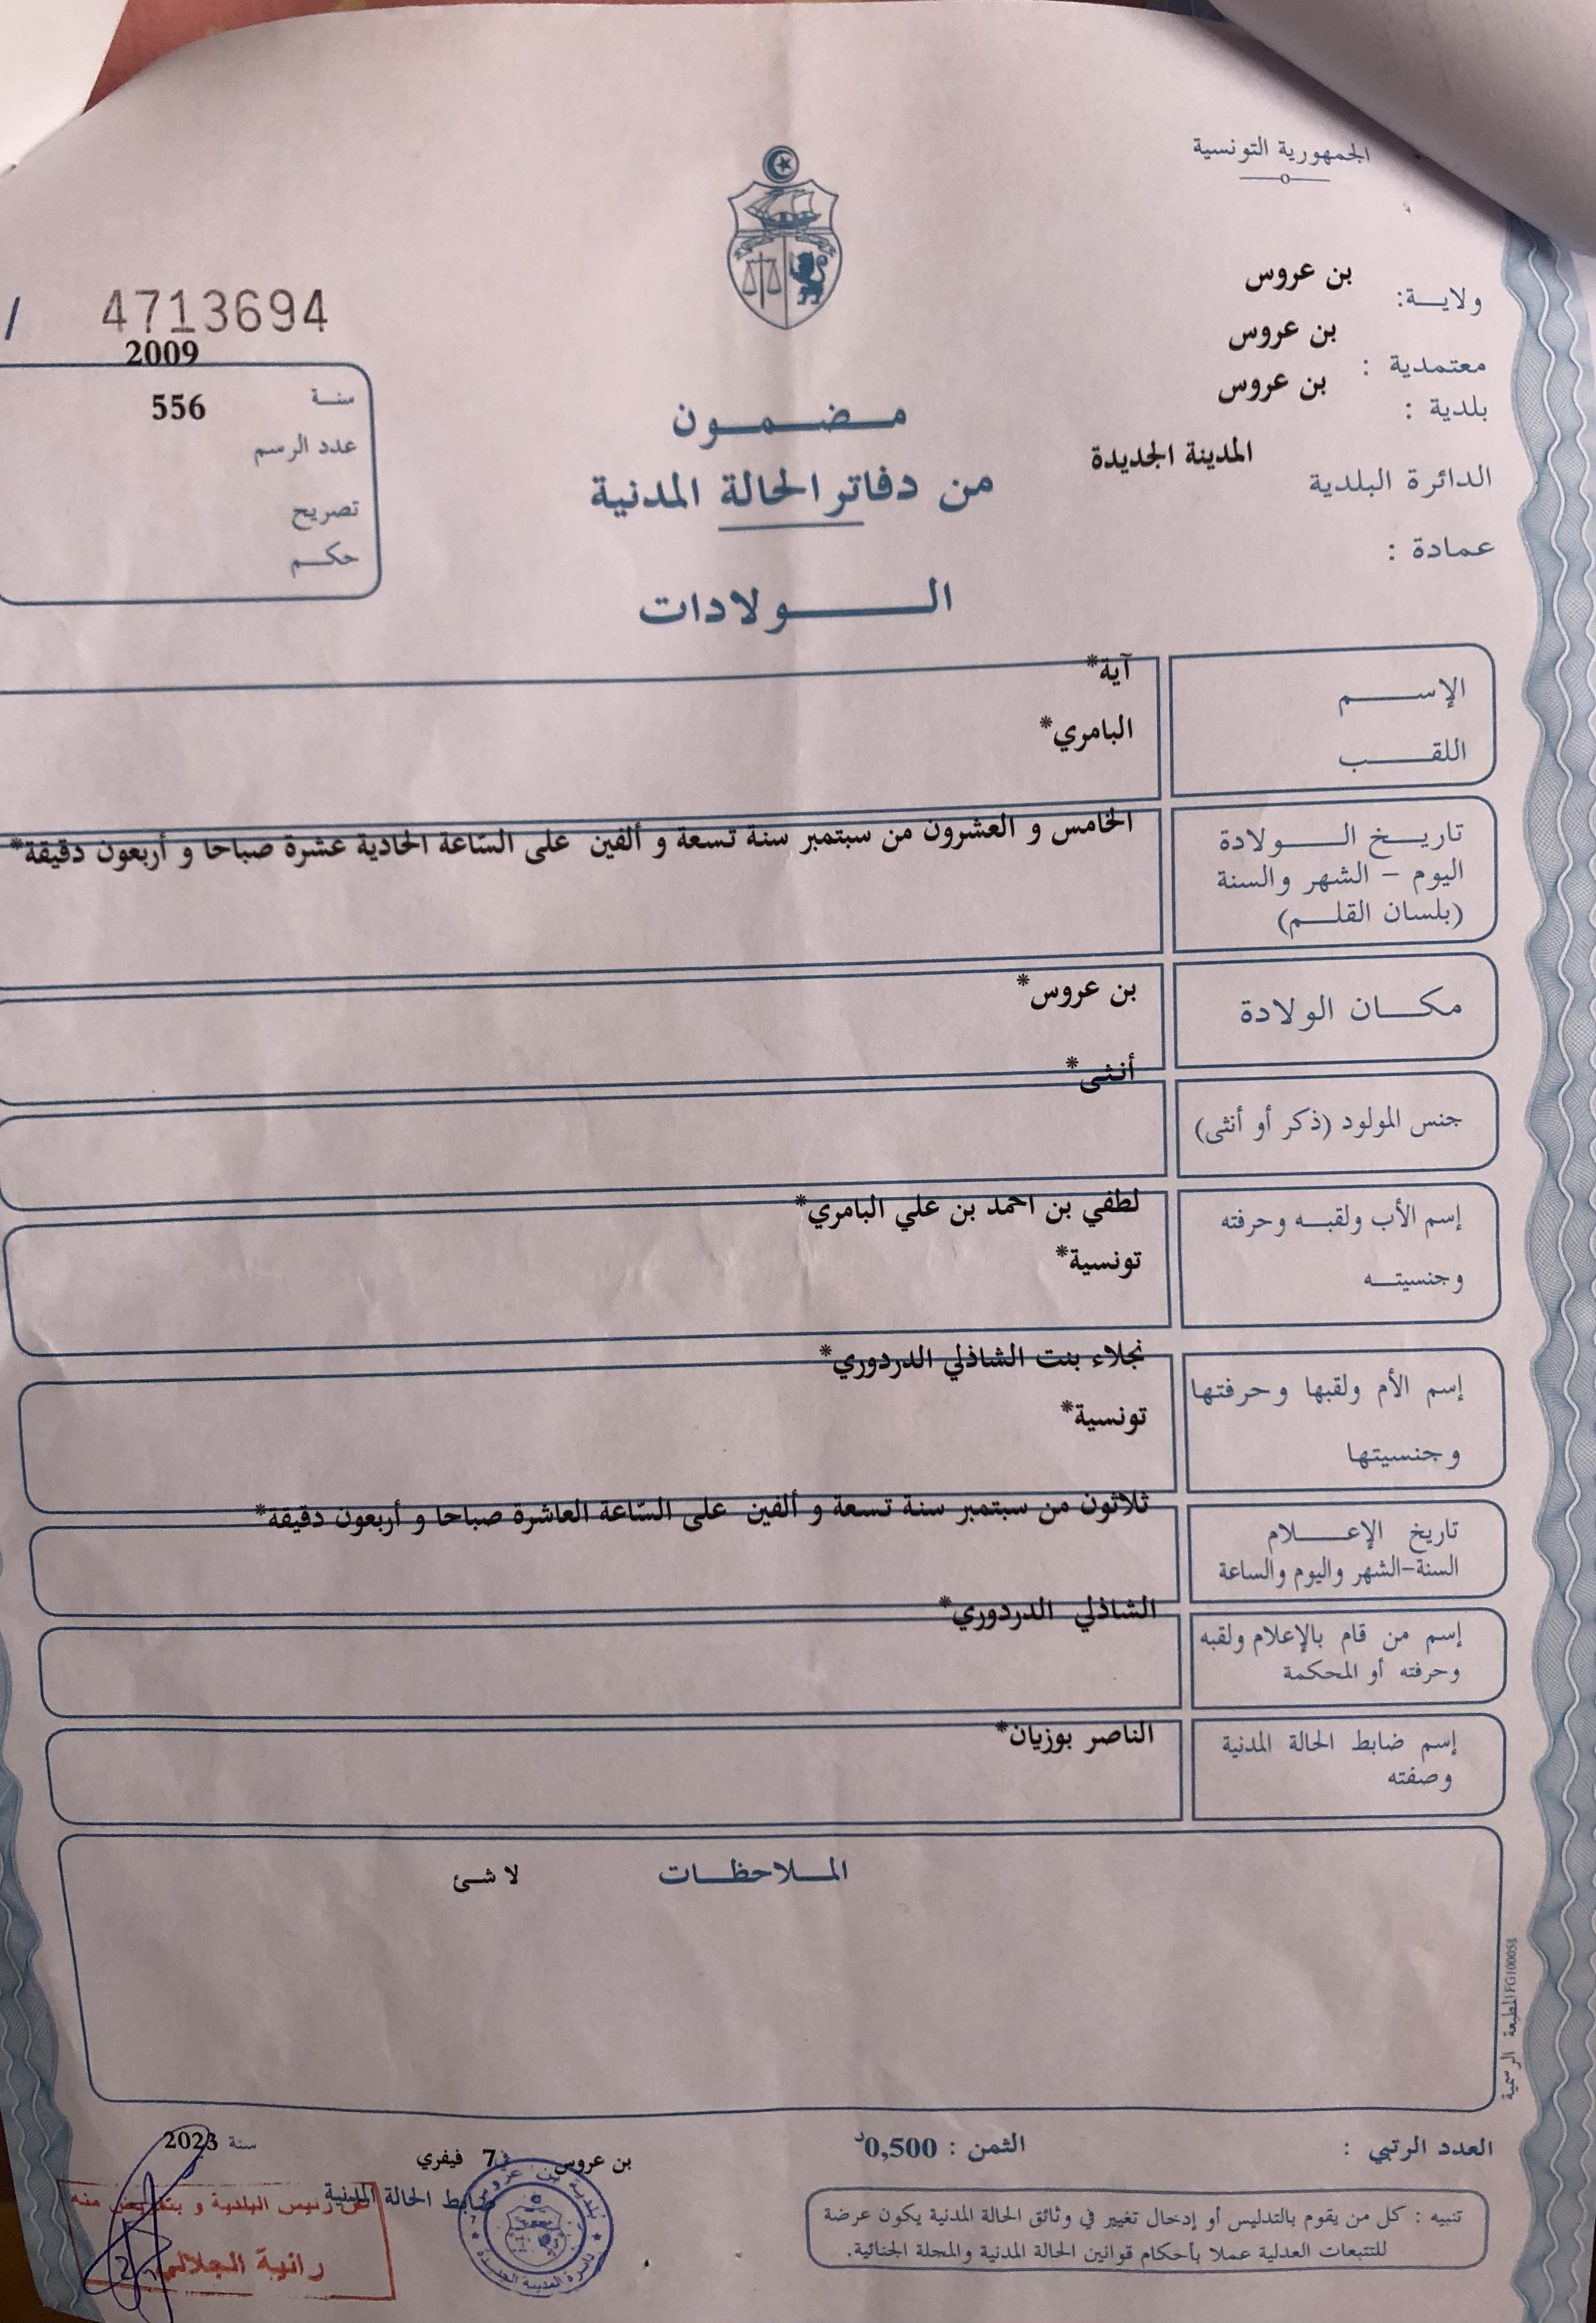 الجمهورية التونسية
ولاية: بن عروس
معتمدية : بن عروس
بلدية : بن عروس
الدائرة البلدية المدينة الجديدة
عمادة :
مضمون
من دفاتر الحالة المدنية
الولادات
4713694 /
سنة 2009
عدد الرسم 556
تصريح
حكم
الإسم آية*
اللقب البامري*
تاريخ الولادة الخامس و العشرون من سبتمبر سنة تسعة و ألفين على السّاعة الحادية عشرة صباحا و أربعون دقيقة*
اليوم - الشهر والسنة
(بلسان القلم)
مكان الولادة بن عروس*
جنس المولود (ذكر أو أنثى) أنثى*
إسم الأب ولقبه وحرفته لطفي بن احمد بن علي البامري*
وجنسيته تونسية*
إسم الأم ولقبها وحرفتها نجلاء بنت الشاذلي الدردوري*
وجنسيتها تونسية*
تاريخ الإعلام ثلاثون من سبتمبر سنة تسعة و ألفين على السّاعة العاشرة صباحا و أربعون دقيقة*
السنة-الشهر واليوم والساعة
إسم من قام بالإعلام ولقبه الشاذلي الدردوري*
وحرفته أو المحكمة
إسم ضابط الحالة المدنية الناصر بوزيان*
وصفته
الملاحظات لا شئ
المطبعة الرسمية FG100058
العدد الرتبي :
الثمن : 0,500د
بن عروس في 7 فيفري سنة 2023
ضابط الحالة المدنية
عن رئيس البلدية و بتفويض منه
رانية الجلالي
بلدية بن عروس
دائرة المدينة الجديدة
تنبيه : كل من يقوم بالتدليس أو إدخال تغيير في وثائق الحالة المدنية يكون عرضة
للتتبعات العدلية عملا بأحكام قوانين الحالة المدنية والمجلة الجنائية.